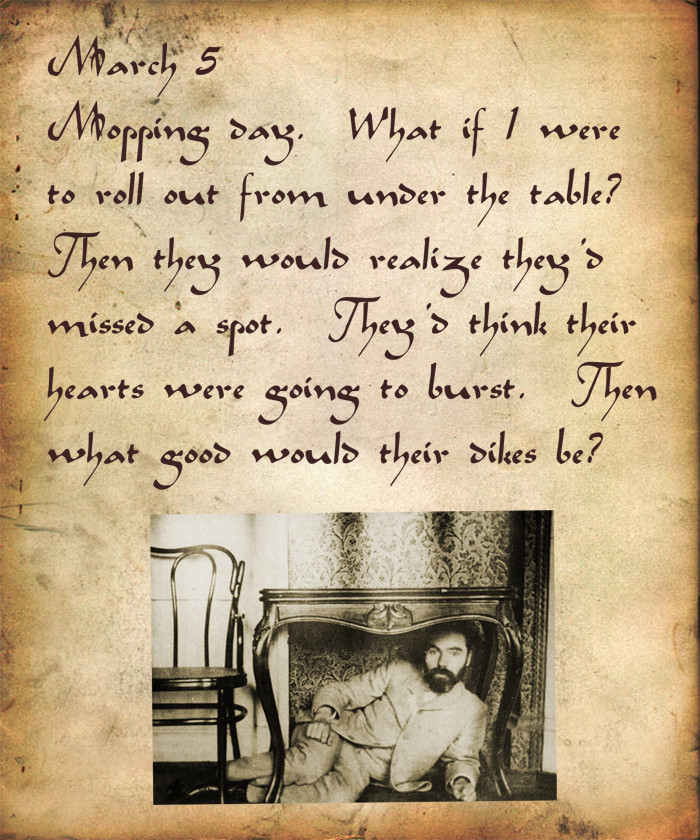 March 5
Mopping day. What if I were
to roll out from under the table?
Then they would realize they'd
missed a spot. They'd think their
hearts were going to burst. Then
what good would their dikes be?